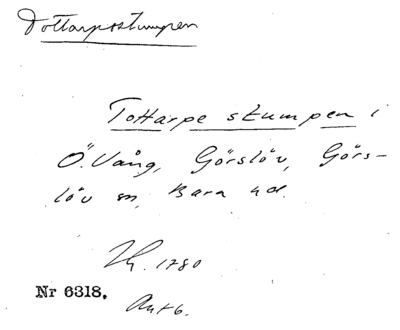 Tottarpostumpen
Tottarpe stumpen i
Ö. Vång, Görslöv, Görs-
löv sn, Bara hd.
Lh. 1780
Nr 6318.
Akt 6.